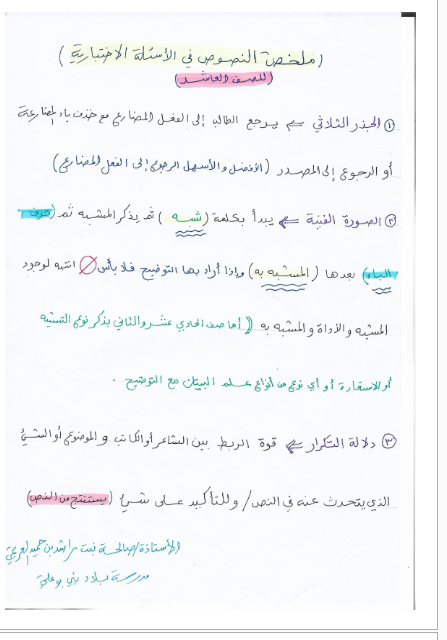 (ملخص النصوص في الأسئلة الاختبارية)
(للصف العاشر)
① الجذر الثلاثي ⇐ يرجع الطالب إلى الفعل المضارع مع حذف ياء المضارعة
أو الرجوع إلى المصدر (الأفضل والأسهل الرجوع إلى الفعل المضارع)
② الصورة الفنية ⇐ يبدأ بكلمة (شبه) ثم يذكر المشبه ثم (حرف
الباء) بعدها (المشبه به) وإذا أراد بها التوضيح فلا بأس انتبه لوجود
المشبه والأداة والمشبه به ((أما صف الحادي عشر والثاني بذكر نوع التشبيه
أو الاستعارة أو أي نوع من أنواع علم البيان مع التوضيح .
③ دلالة التكرار ⇐ قوة الربط بين الشاعر أو الكاتب والموضوع أو الشئ
الذي يتحدث عنه في النص / وللتأكيد على شئ (يستنتج من النص)
الأستاذة / صالحة بنت راشد بن حميد العريمي
مدرسة بلاد بني بوعلي